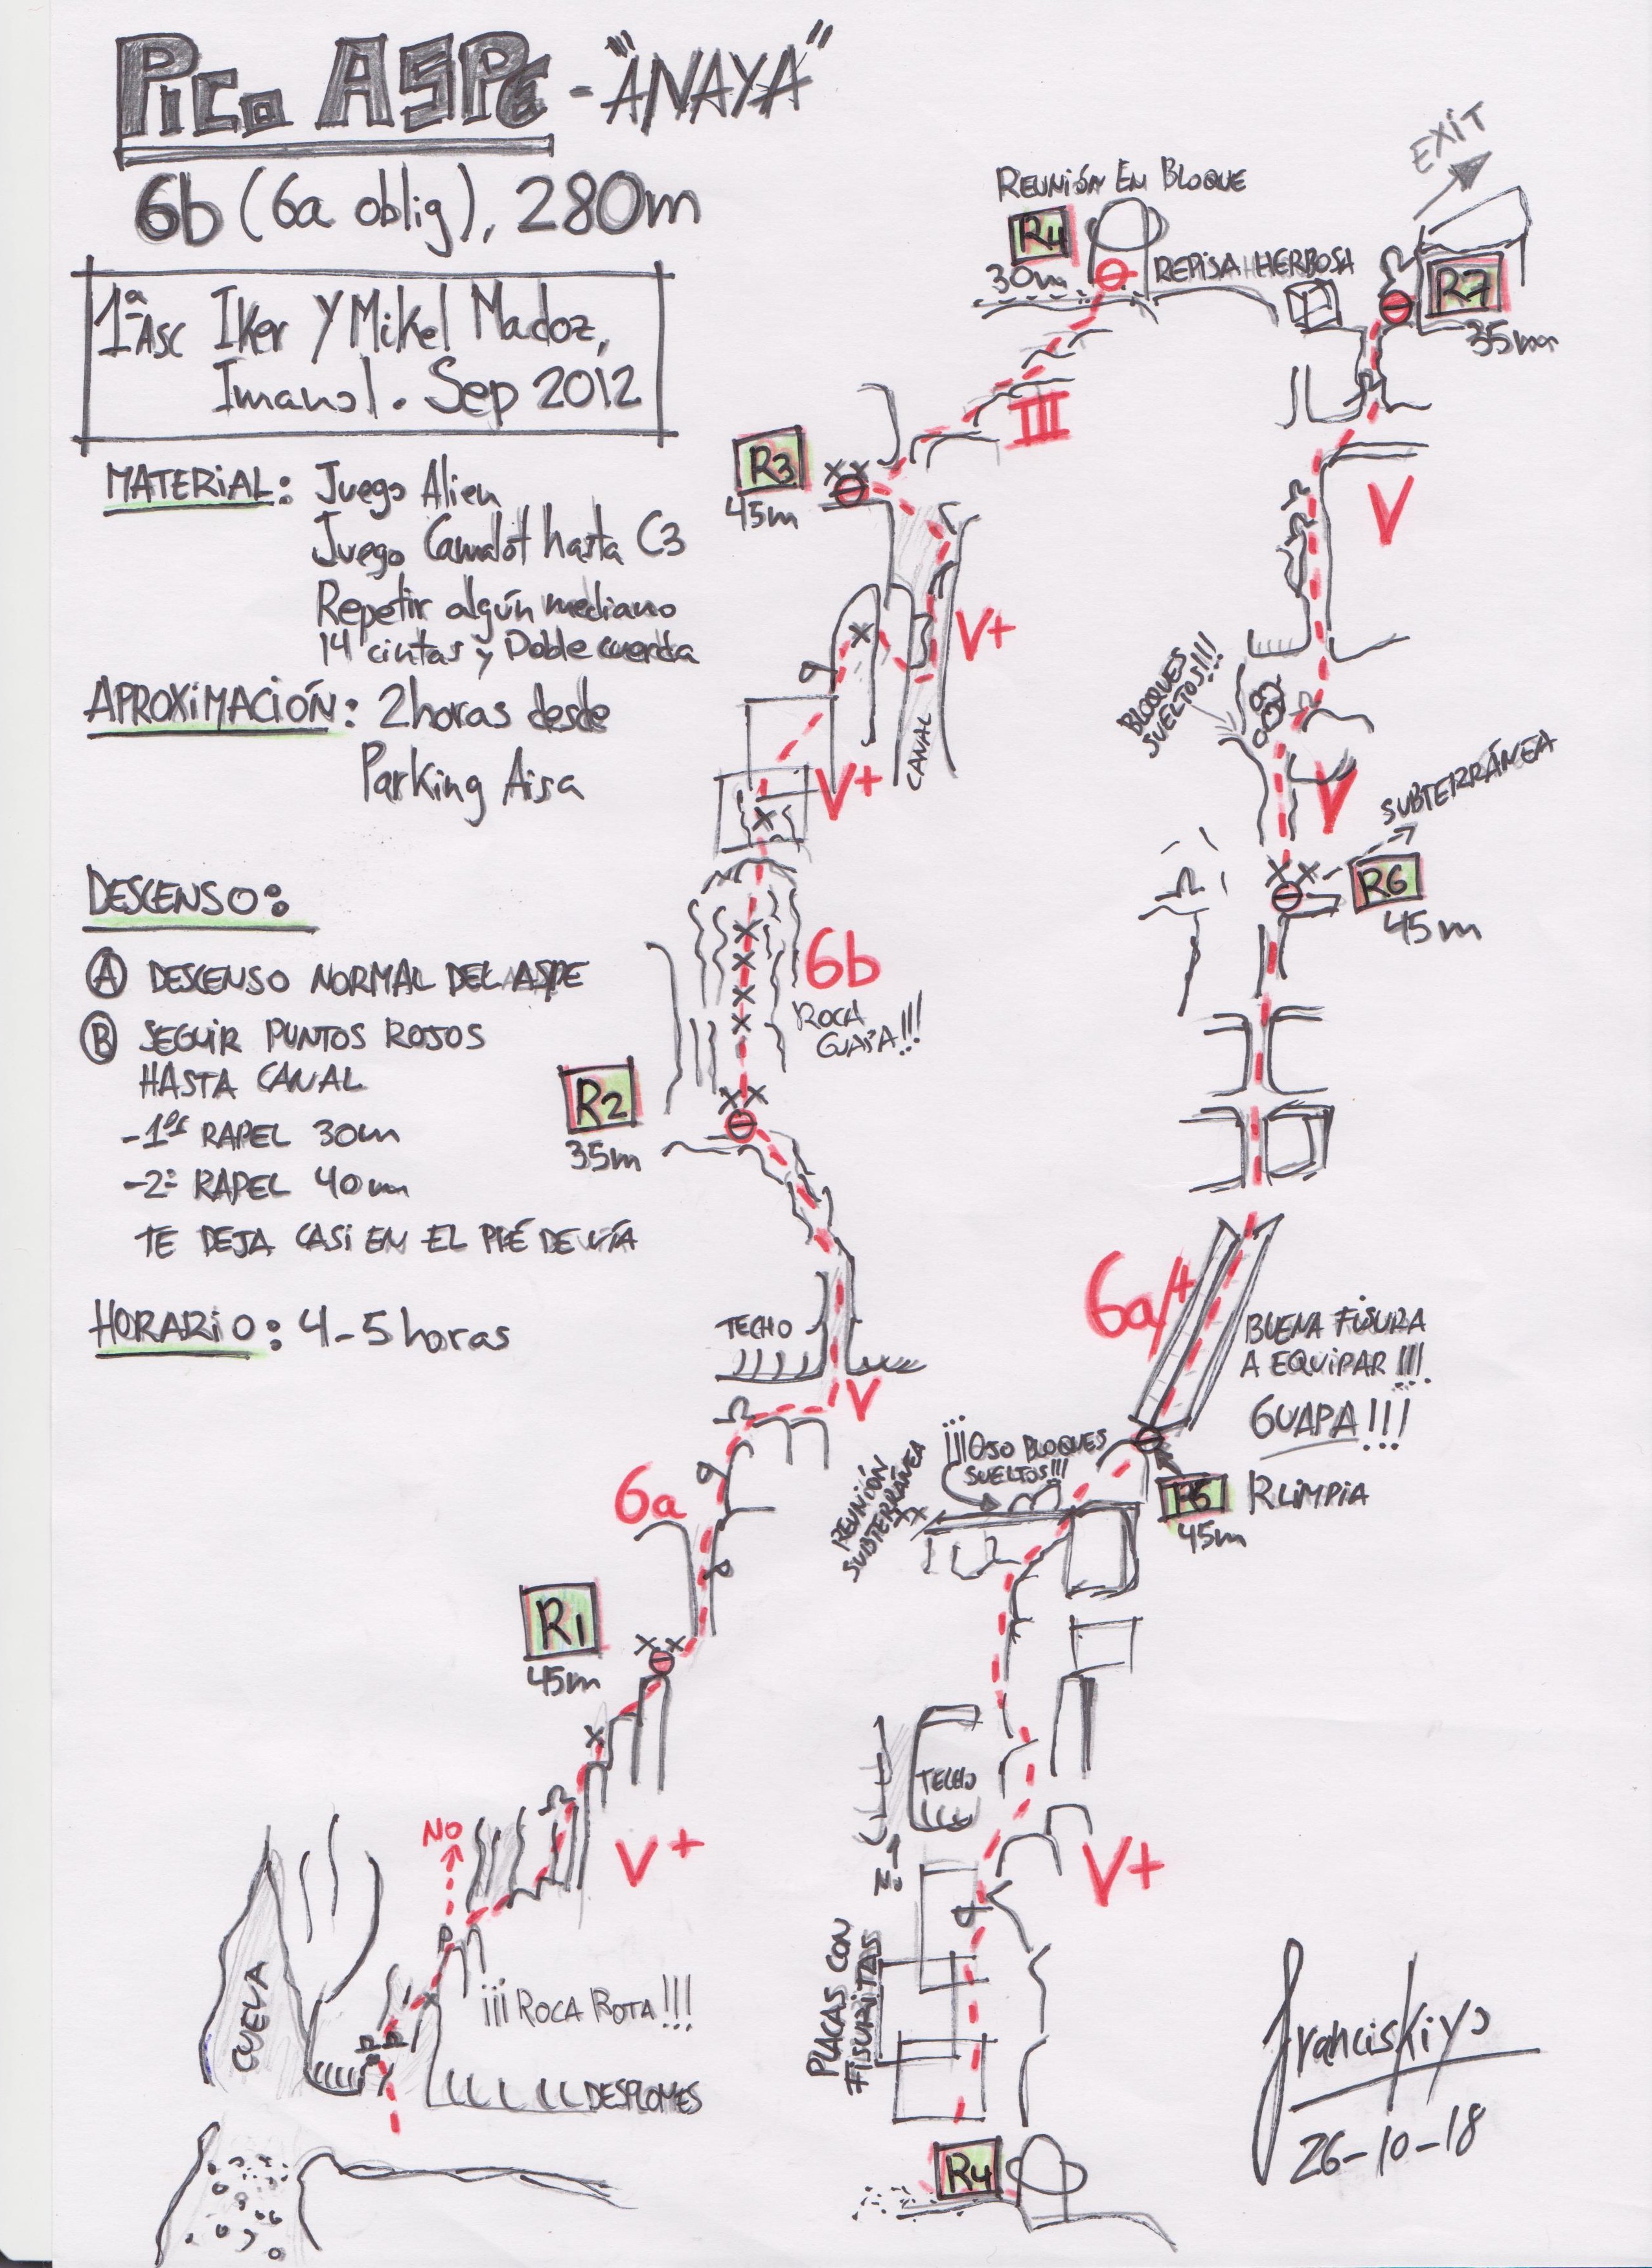 PICO ASPE - "ANAYA"
6b (6a oblig), 280m
1ª ASC Iker y Mikel Madoz,
Imanol. Sep 2012
MATERIAL: Juego Alien
Juego Camalot hasta C3
Repetir algún mediano
14 cintas y Doble cuerda
APROXIMACIÓN: 2 horas desde
Parking Aisa
DESCENSO:
A DESCENSO NORMAL DEL ASPE
B SEGUIR PUNTOS ROJOS
HASTA CANAL
-1er RAPEL 30m
-2º RAPEL 40m
TE DEJA CASI EN EL PIÉ DE VÍA
HORARIO: 4-5 horas
REUNIÓN EN BLOQUE
R4
30m
REPISA HERBOSA
III
R3
45m
V+
CANAL
V+
6b
ROCA
GUAPA!!!
R2
35m
TECHO
V
6a
R1
45m
V+
NO
CUEVA
¡¡¡ROCA ROTA!!!
DESPLOMES
EXIT
R7
35m
V
BLOQUES
SUELTOS!!!
V
SUBTERRÁNEA
R6
45m
6a/+
BUENA FISURA
A EQUIPAR!!!
GUAPA!!!
¡¡¡OJO BLOQUES
SUELTOS!!!
REUNIÓN
SUBTERRÁNEA
R5
R LIMPIA
45m
TECHO
No
V+
PLACAS CON
FISURITAS
R4
Franciskiyo
26-10-18